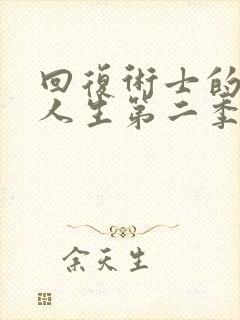 回復術士的
人生第二季
余天生